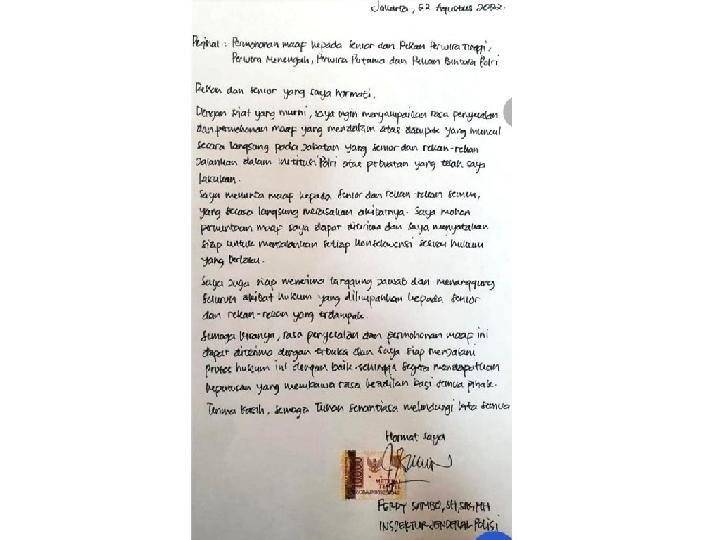 Jakarta, 22 Agustus 2022.
Perihal : Permohonan maaf kepada Senior dan Rekan Perwira Tinggi,
Perwira Menengah, Perwira Pertama dan Rekan Bintara Polri
Rekan dan senior yang saya hormati,
Dengan niat yang murni, saya ingin menyampaikan rasa penyesalan
dan permohonan maaf yang mendalam atas dampak yang muncul
secara langsung pada jabatan yang senior dan rekan-rekan
jalankan dalam institusi Polri atas perbuatan yang telah saya
lakukan.
Saya meminta maaf kepada senior dan rekan-rekan semua,
yang secara langsung merasakan akibatnya. Saya mohon
permintaan maaf saya dapat diterima dan saya menyatakan
siap untuk menjalankan setiap konsekuensi sesuai hukum
yang berlaku.
Saya juga siap menerima tanggung jawab dan menanggung
seluruh akibat hukum yang dilimpahkan kepada senior
dan rekan-rekan yang terdampak.
Semoga kiranya, rasa penyesalan dan permohonan maaf ini
dapat diterima dengan terbuka dan saya siap menjalani
proses hukum ini dengan baik sehingga segera mendapatkan
keputusan yang membawa rasa keadilan bagi semua pihak.
Terima kasih, semoga Tuhan senantiasa melindungi kita semua
Hormat saya
10000
METERAI
TEMPEL
FERDY SAMBO, SH, SIK, MH
INSPEKTUR JENDERAL POLISI